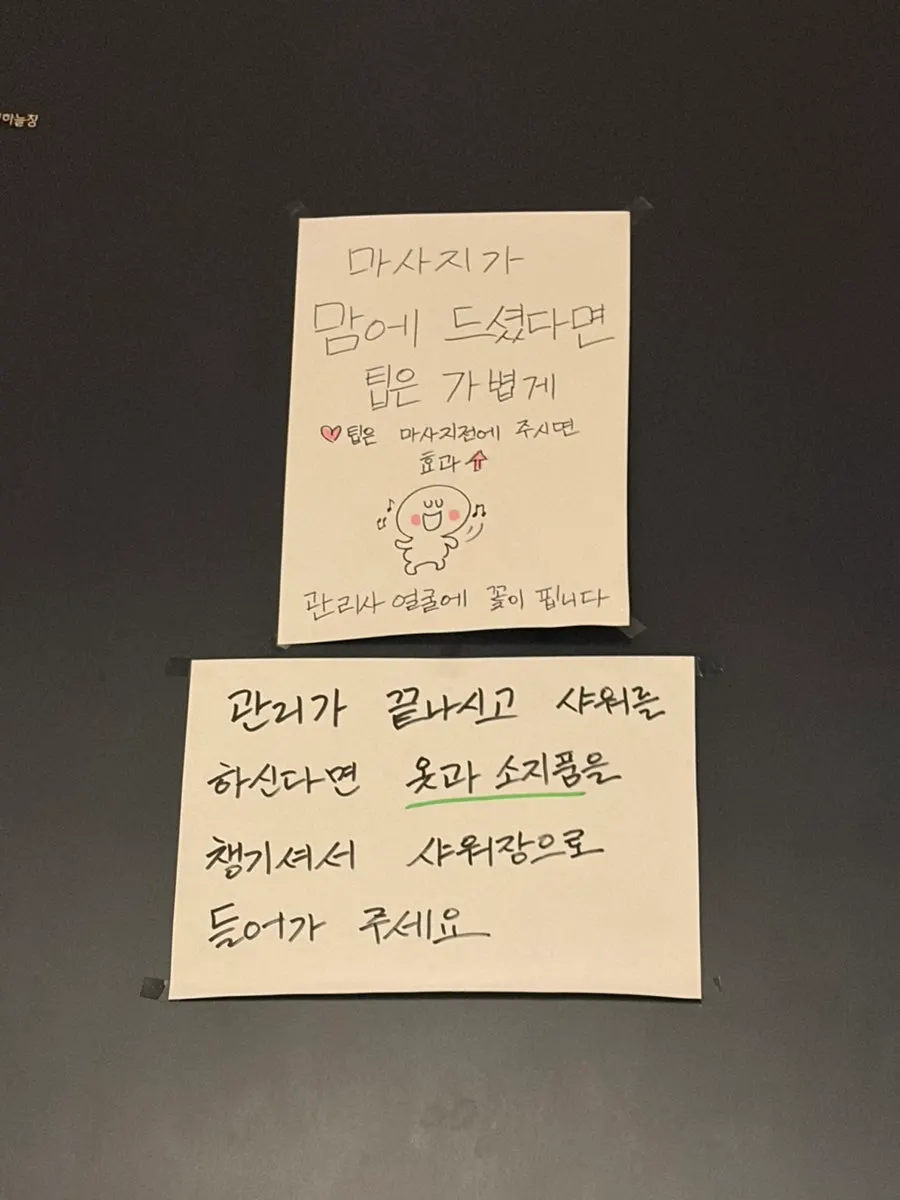 마늘장
마사지가
맘에 드셨다면
팁은 가볍게
팁은 마사지전에 주시면
효과
관리사 얼굴에 꽃이 핍니다
관리가 끝나시고 샤워를
하신다면 옷과 소지품을
챙기셔서 샤워장으로
들어가 주세요